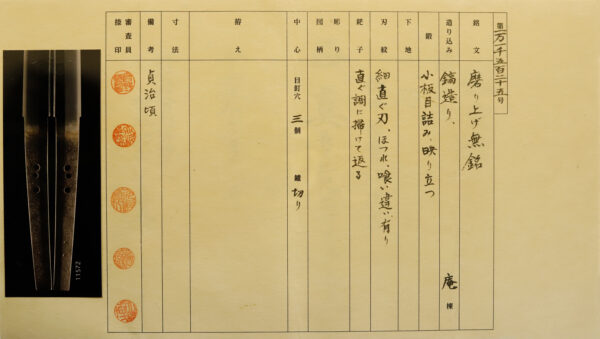 第一万一千五百二十五号
銘文 磨り上げ無銘
造り込み 鎬造り、 庵棟
鍛 小板目詰み、映り立つ
下地
刃紋 細直ぐ刃、ほつれ、喰い違い有り
鋩子 直ぐ調に掃けて返る
彫り
図柄
中心 目釘穴 三個 鑢 切り
拵え
寸法
備考 貞治頃
審査員
捺印
11572